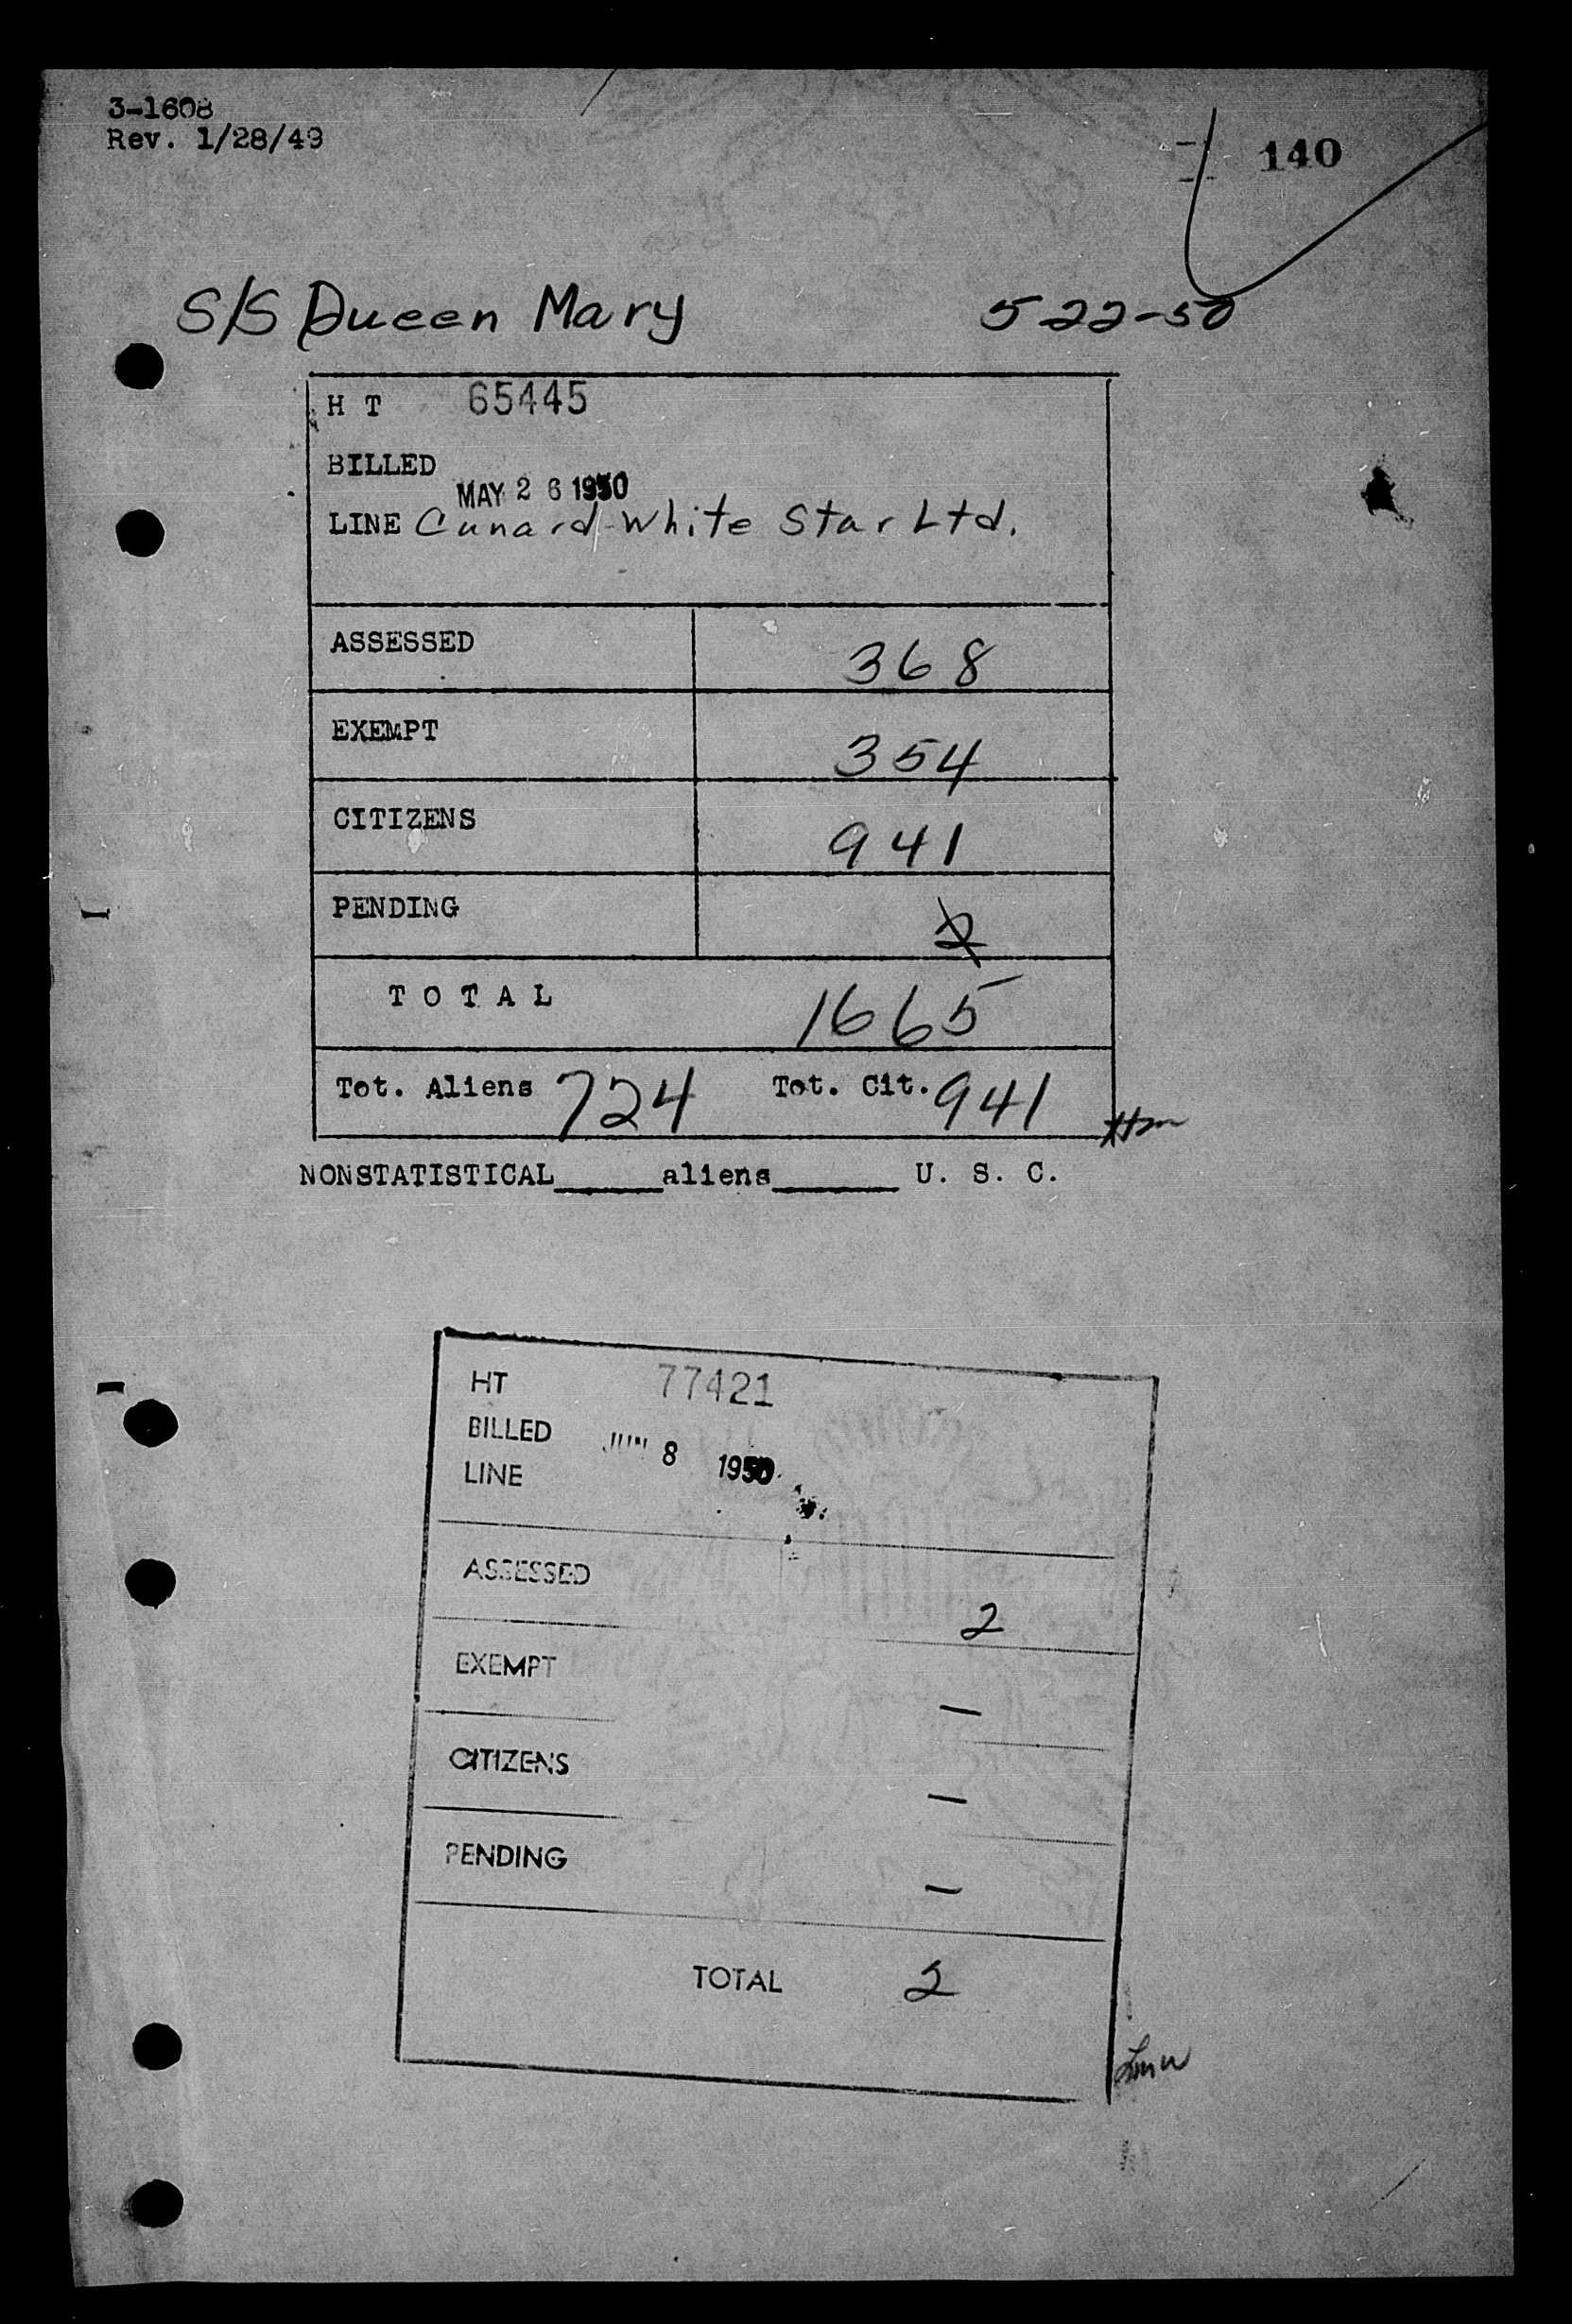 3-1608
Rev. 1/28/49
140
S/S Queen Mary 5-22-50
H T 65445
BILLED
MAY 26 1950
LINE Cunard-White Star Ltd.
ASSESSED 368
EXEMPT 354
CITIZENS 941
PENDING 2
TOTAL 1665
Tot. Aliens 724 Tot. Cit. 941
NONSTATISTICAL_____aliens______ U. S. C.
HT 77421
BILLED JUN 8 1950
LINE
ASSESSED 2
EXEMPT —
CITIZENS —
PENDING —
TOTAL 2